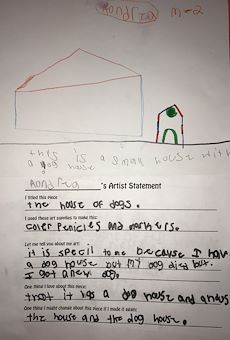 Aondrea M-2
this is a small house with
a dog house
Aondrea 's Artist Statement
I titled this piece
the house of dogs.
I used these art supplies to make this:
coler penicles and markers.
Let me tell you about my art:
it is specil to me because I hav
a dog house but my dog died but.
I got a new dog.
One thing I love about this piece:
that it has a dog house and
One thing I might change about this piece if I made it again:
the house and the dog house.